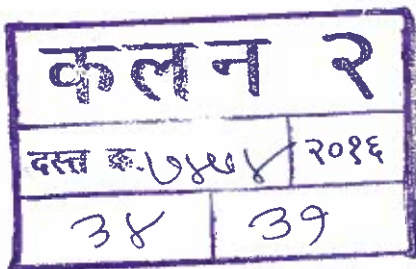 कलन २
दस्त क्र. २०१६
३४ ३९